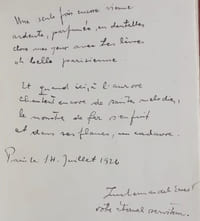 Une seule fois encore vienne
ardente, parfumée, en dentelles
clore mes yeux avec tes lèvres
oh belle parisienne
Et quand ici, à l'aurore
chantent encore de saintes mélodies,
le monstre de fer s'enfuit
et dans ses flancs, un cadavre.
Paris le 14. Juillet 1926
votre éternel serviteur.